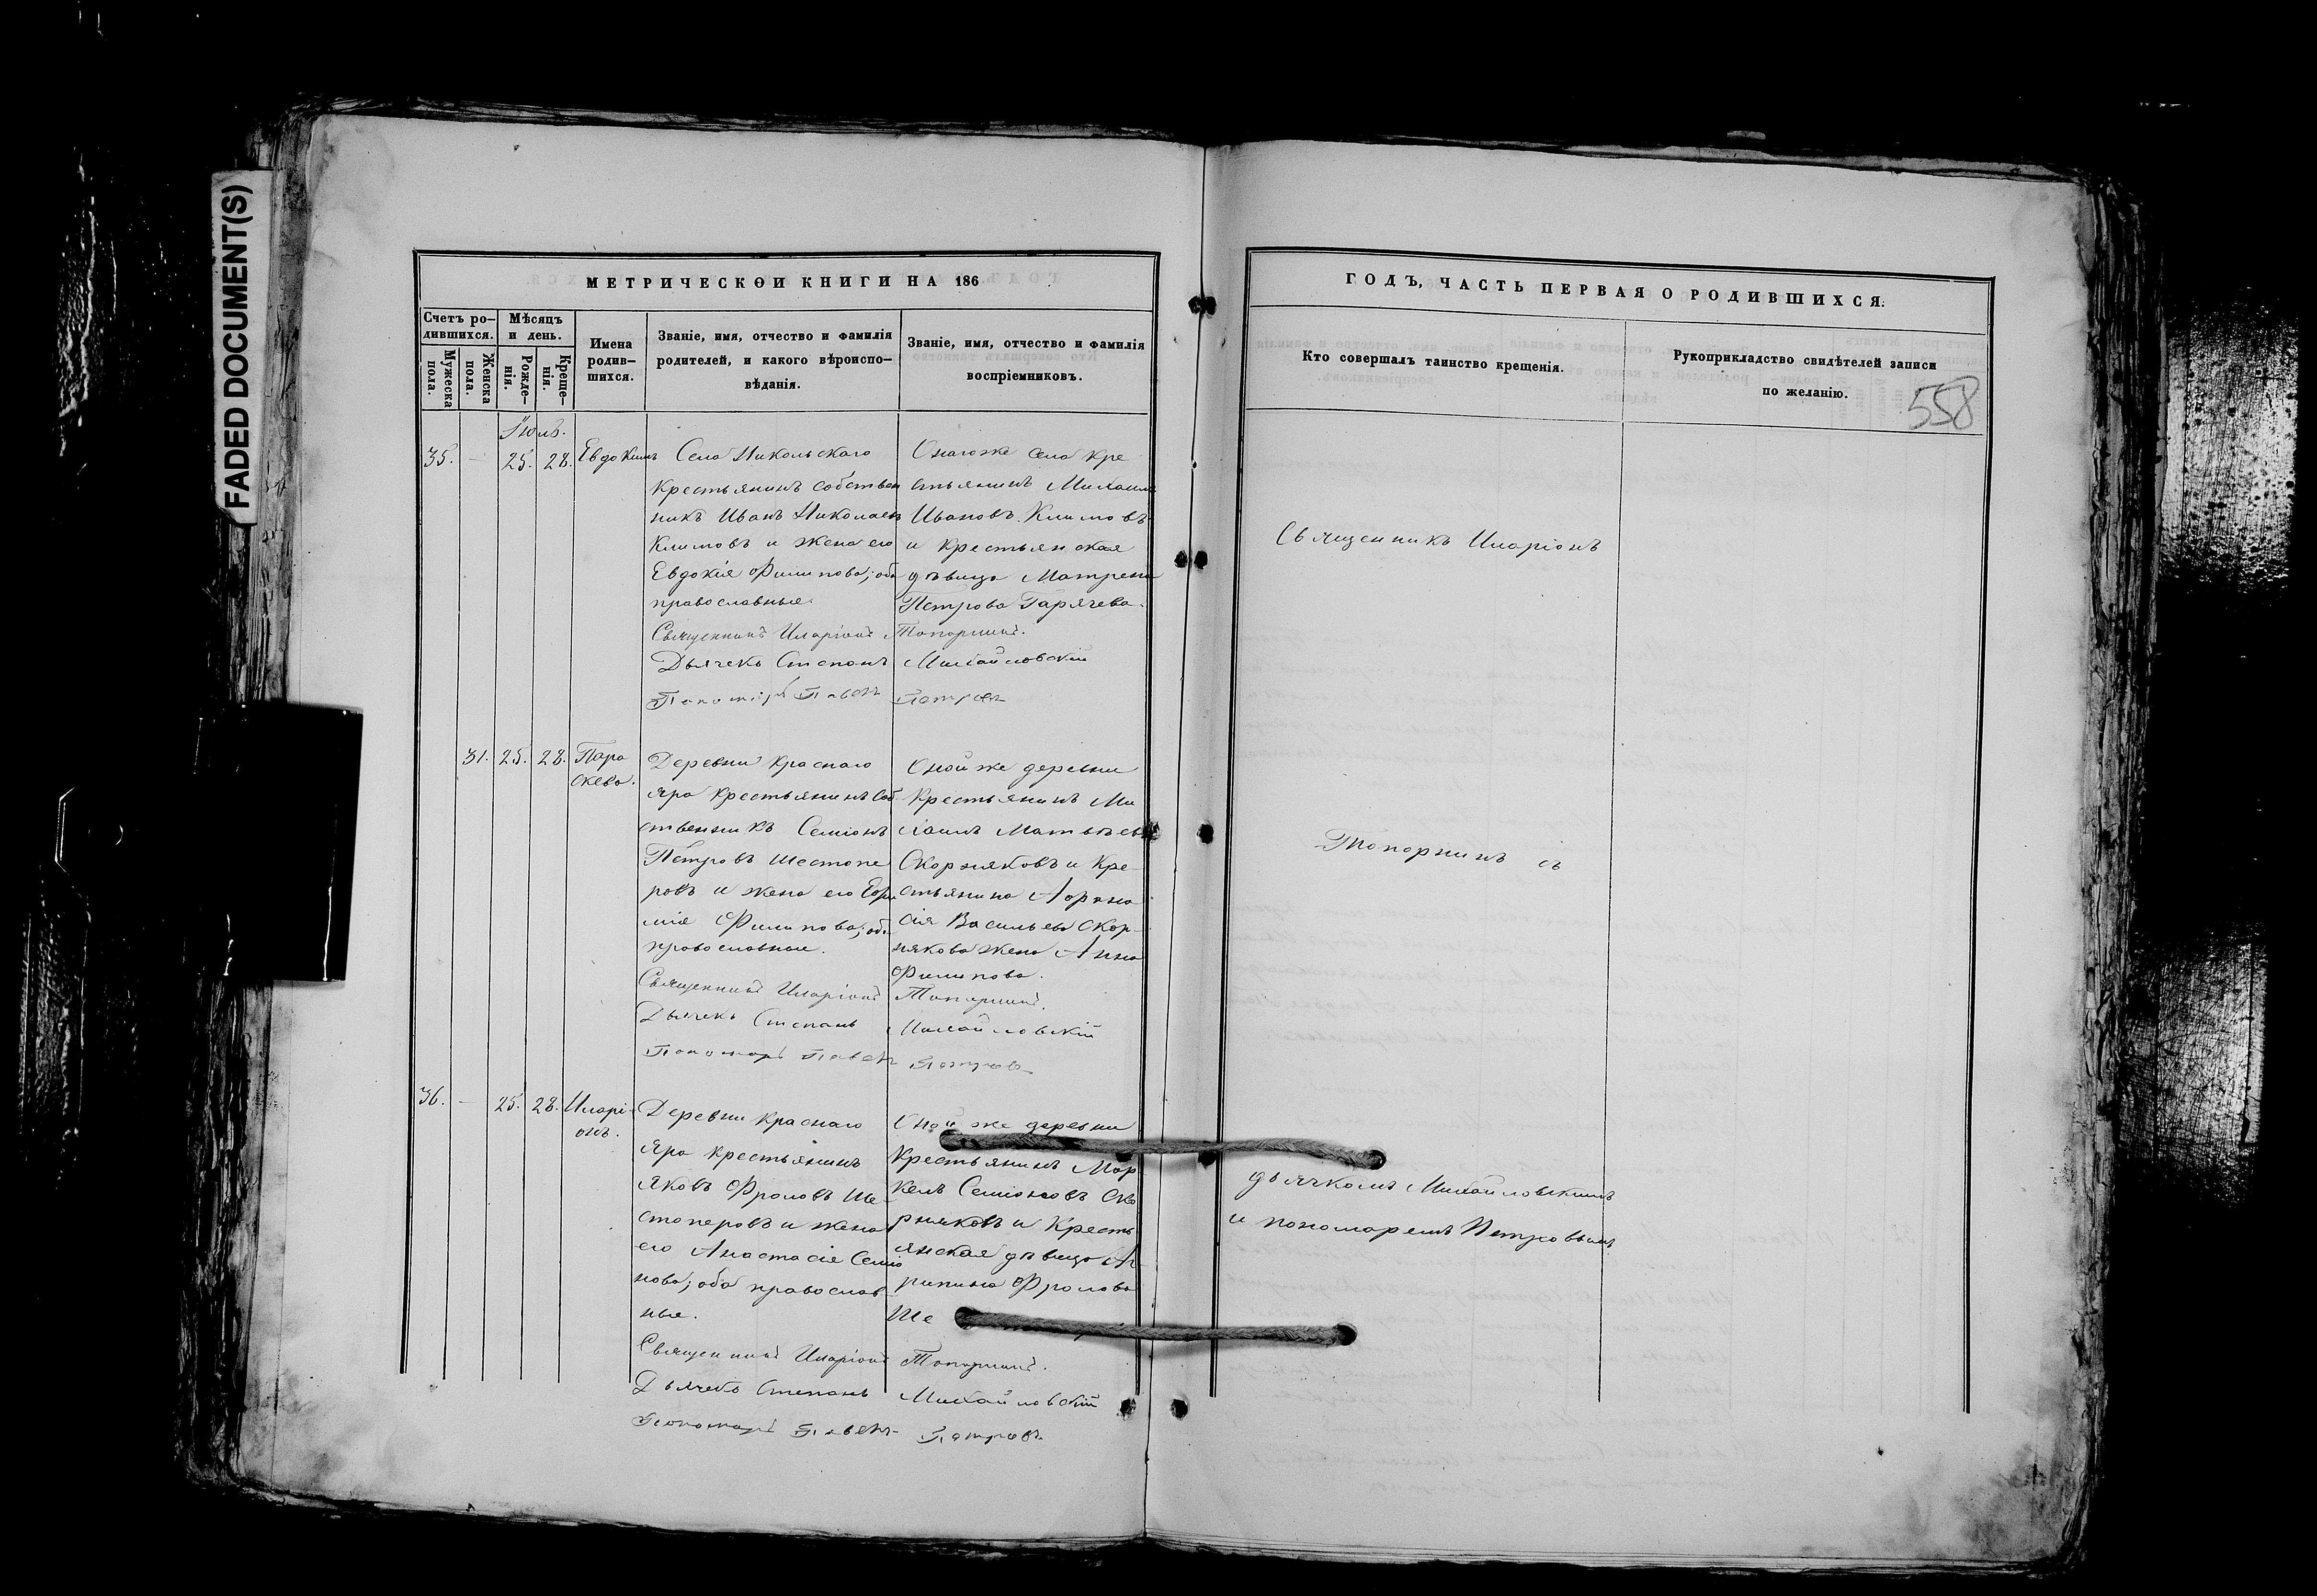 FADED DOCUMENT(S)
МЕТРИЧЕСКОЙ КНИГИ НА 186
Счетъ ро-
дившихся.
Мужеска
пола.
Женска
пола.
Мѣсяцъ
и день.
Рожде-
нія.
Креще-
нія.
Имена
родив-
шихся.
Званіе, имя, отчество и фамилія
родителей, и какого вѣроиспо-
вѣданія.
Званіе, имя, отчество и фамилія
воспріемниковъ.
Іюль.
35. - 25. 28. Евдокимъ
Села Никольскаго
крестьянинъ собствен
никъ Иванъ Николаевъ
Климовъ и жена его
Евдокія Филипова; оба
православные.
Священникъ Иларіонъ
Дьячекъ Степанъ
Пономарь Павелъ
Онагоже села кре
стьянинъ Михаилъ
Ивановъ Климовъ
и крестьянская
дѣвица Матрена
Петрова Гарячева.
Топорнинъ.
Михайловскій
Петровъ
31. 25. 28. Пара
скева.
Деревни Краснаго
Яра крестьянинъ Соб-
ственникъ Семіонъ
Петровъ Шестопе
ровъ и жена его Евфи
мія Филипова; оба
православные.
Священникъ Иларіонъ
Дьячекъ Степанъ
Пономарь Павелъ
Оной же деревни
Крестьянинъ Ми
хаилъ Матвѣевъ
Скорняковъ и Кре
стьянина Афана
сія Васильева Скор-
някова жена Анна
Филипова.
Топорнинъ.
Михайловскій
Петровъ
36. - 25. 28. Иларі-
онъ.
Деревни Краснаго
Яра крестьянинъ
Яковъ Фроловъ Ше-
стоперовъ и жена
его Анастасія Семіо
нова; оба православ
ные.
Священникъ Иларіонъ
Дьячекъ Степанъ
Пономарь Павелъ
Оной же деревни
Крестьянинъ Мар
келъ Семіоновъ Ско
рняковъ и Кресть
янская дѣвица Аг
рипина Фролова
Ше
Топорнинъ.
Михайловскій
Петровъ
ГОДЪ, ЧАСТЬ ПЕРВАЯ О РОДИВШИХСЯ.
Кто совершалъ таинство крещенія.
Рукоприкладство свидѣтелей записи
по желанію.
558
Священникъ Иларіонъ
Топорнинъ съ
дьячкомъ Михайловскимъ
и пономаремъ Петровымъ